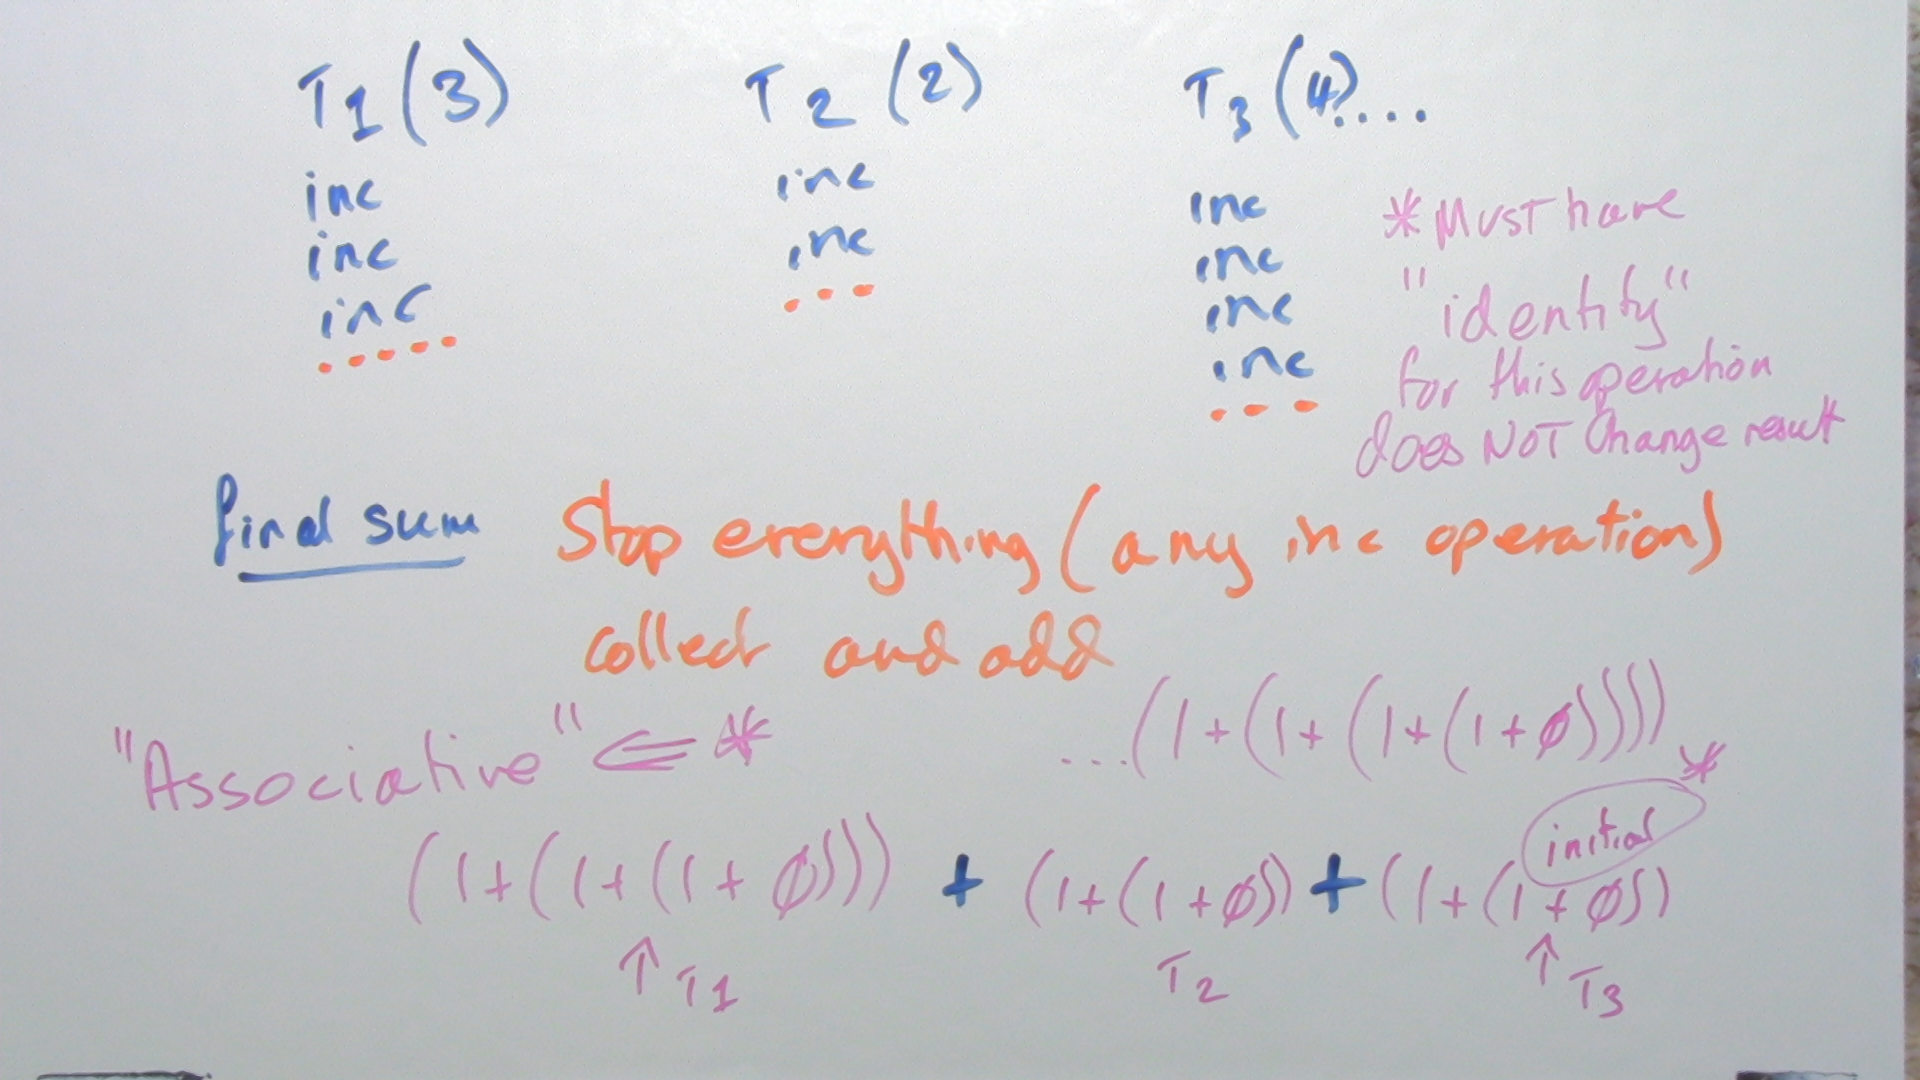 T1 (3)
T2 (2)
T3 (4)....
inc
inc
inc
inc
inc
inc
inc
inc
inc
* MUST have
"identity"
for this operation
does NOT Change result
final sum
Stop everything (any inc operation)
collect and add
"Associative" ⇐ *
...(1+(1+(1+(1+ø))))
*
initial
(1+(1+(1+ø))) + (1+(1+ø)) + (1+(1+ø))
↑ T1
T2
↑ T3